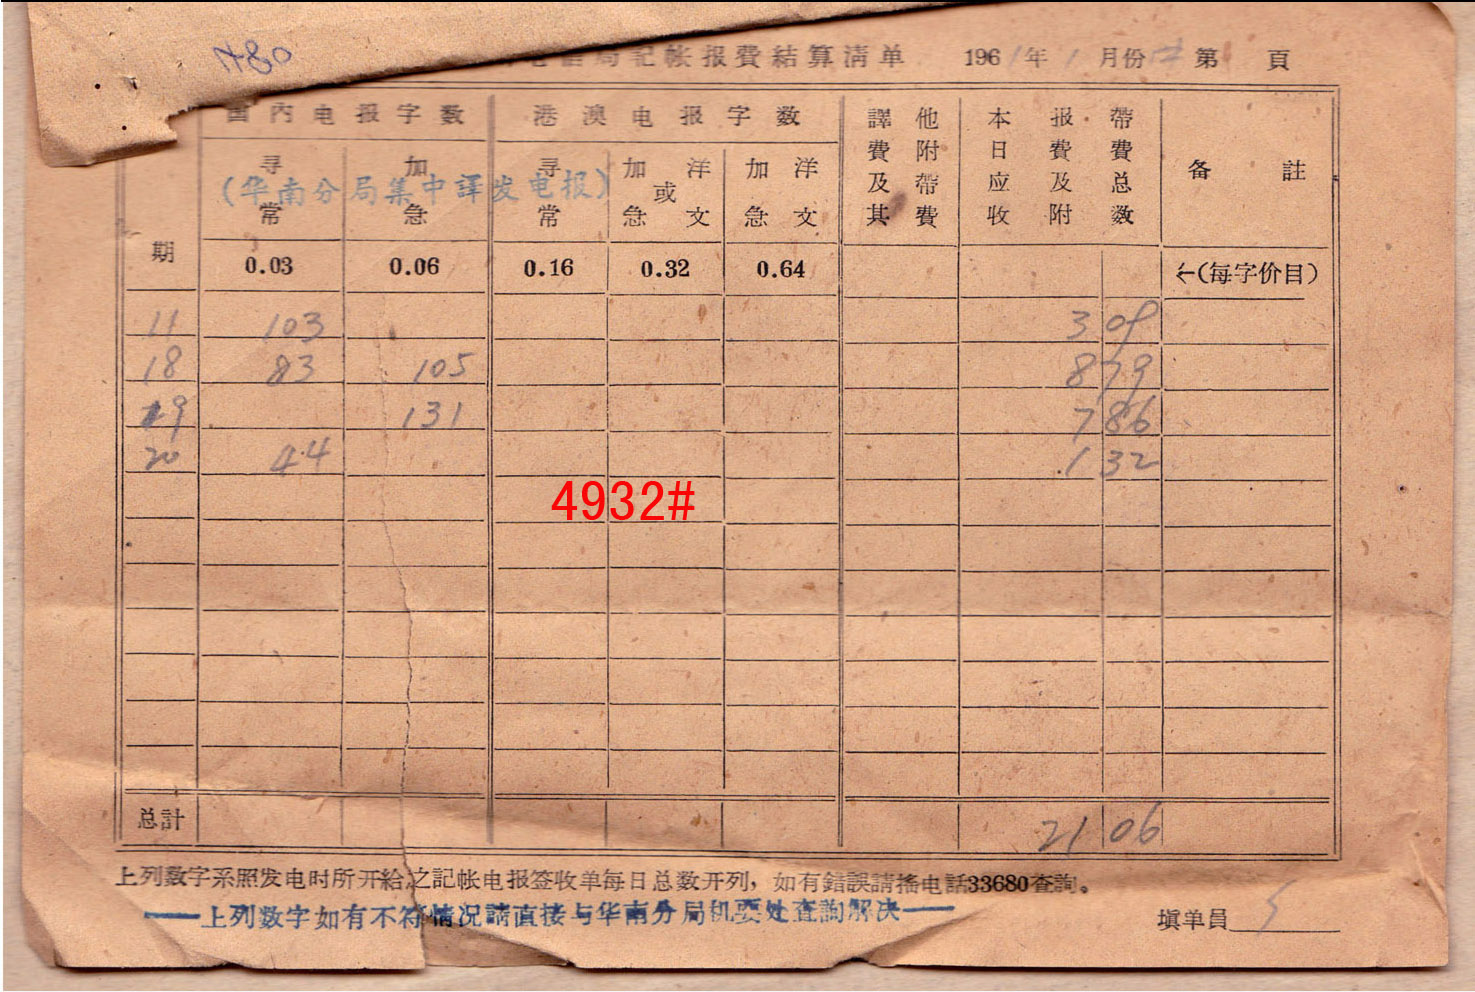 1780
局記帐报費結算清单 1961年1月份 第 頁
国内电报字数 港澳电报字数 譯費及其他附帶費 本日应收报費及附帶費总数 备註
期 寻常 加急 寻常 加急或洋文 加急洋文
(华南分局集中譯发电报)
0.03 0.06 0.16 0.32 0.64 ←(每字价目)
11 103 3 09
18 83 105 8 79
19 131 7 86
20 44 1 32
4932#
总計 21 06
上列数字系照发电时所开給之記帐电报签收单每日总数开列，如有錯誤請搖电話33680查詢。
上列数字如有不符情况請直接与华南分局机要处查詢解决
填单员